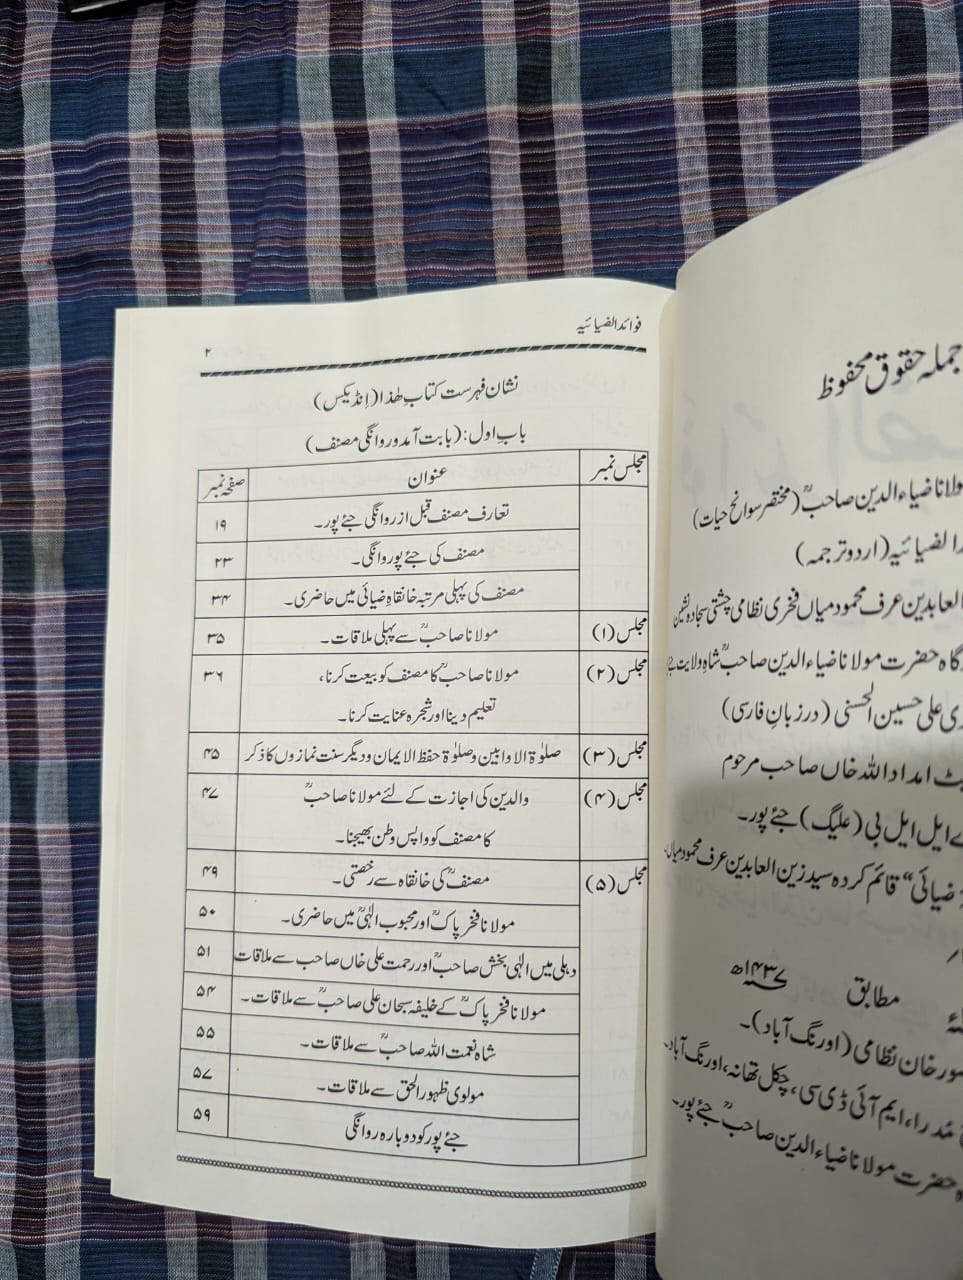 جملہ حقوق محفوظ
مولانا ضیاء الدین صاحبؒ (مختصر سوانح حیات)
الضیائیہ (اردو ترجمہ)
العابدین عرف محمود میاں فخری نظامی چشتی سجادہ نشین
گاہ حضرت مولانا ضیاء الدین صاحبؒ شاہِ ولایت
علی حسین الحسنی (در زبانِ فارسی)
امداد اللہ خاں صاحب مرحوم
ایل ایل بی (علیگ) جئے پور۔
ضیائی“ قائم کردہ سید زین العابدین عرف محمود میاں
مطابق ۱۴۳۷ھ
خان نظامی (اورنگ آباد)۔
ایم آئی ڈی سی، چکل تھانہ، اورنگ آباد۔
حضرت مولانا ضیاء الدین صاحبؒ جئے پور۔
فوائد الضیائیہ
۲
نشان فہرست کتاب ھٰذا (انڈیکس)
باب اول: (بابت آمد و روانگی مصنف)
مجلس نمبر عنوان صفحہ نمبر
تعارف مصنف قبل از روانگی جئے پور۔ ۱۹
مصنف کی جئے پور روانگی۔ ۲۳
مصنف کی پہلی مرتبہ خانقاہِ ضیائی میں حاضری۔ ۳۴
مجلس (۱) مولانا صاحبؒ سے پہلی ملاقات۔ ۳۵
مجلس (۲) مولانا صاحبؒ کا مصنف کو بیعت کرنا، ۳۶
تعلیم دینا اور شجرہ عنایت کرنا۔
مجلس (۳) صلوٰۃ الاوابین و صلوٰۃ حفظ الایمان و دیگر سنت نمازوں کا ذکر ۴۵
مجلس (۴) والدین کی اجازت کے لئے مولانا صاحبؒ ۴۷
کا مصنف کو واپس وطن بھیجنا۔
مجلس (۵) مصنفؒ کی خانقاہ سے رخصتی۔ ۴۹
مولانا فخر پاکؒ اور محبوب الٰہیؒ میں حاضری۔ ۵۰
دہلی میں الٰہی بخش صاحبؒ اور رحمت علی خاں صاحب سے ملاقات ۵۱
مولانا فخر پاکؒ کے خلیفہ سبحان علی صاحبؒ سے ملاقات۔ ۵۴
شاہ نعمت اللہ صاحبؒ سے ملاقات۔ ۵۵
مولوی ظہور الحق سے ملاقات۔ ۵۷
جئے پور کو دوبارہ روانگی ۵۹